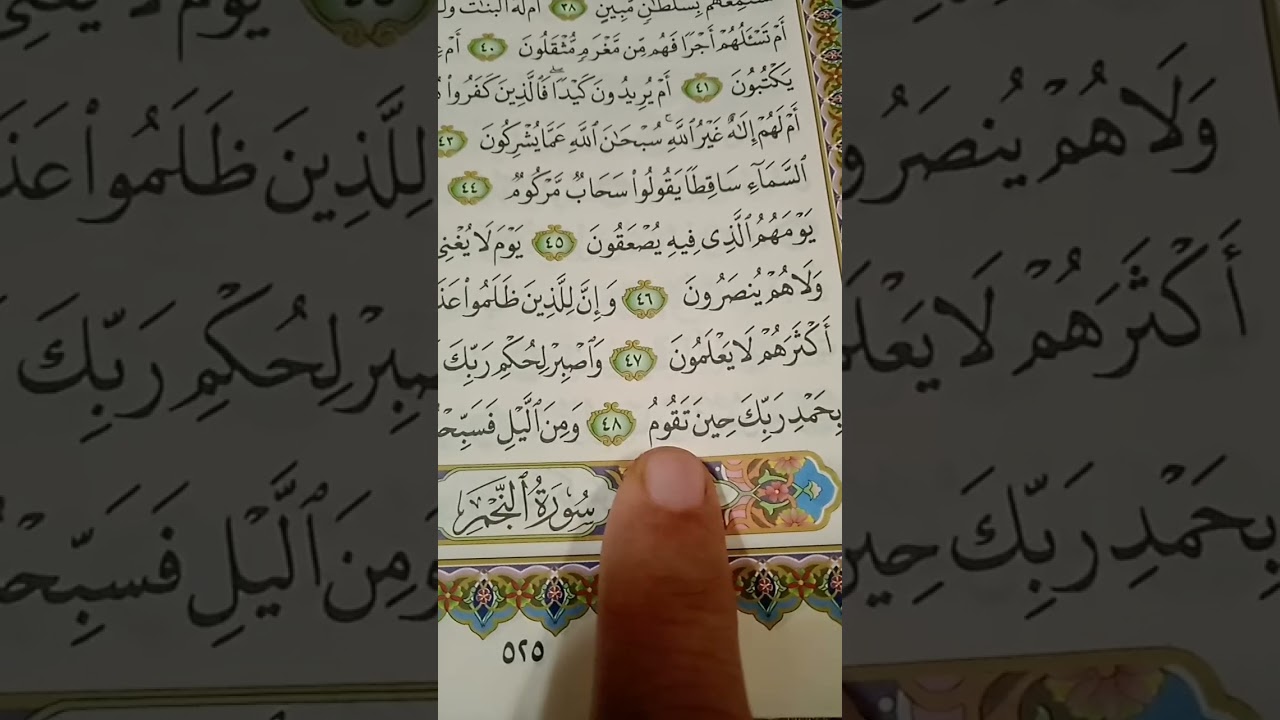 بِسُلْطَٰنٍ مُّبِينٍ ٣٨ أَمْ لَهُ ٱلْبَنَٰتُ
أَمْ تَسْـَٔلُهُمْ أَجْرًا فَهُم مِّن مَّغْرَمٍ مُّثْقَلُونَ ٤٠ أَمْ
يَكْتُبُونَ ٤١ أَمْ يُرِيدُونَ كَيْدًا ۖ فَٱلَّذِينَ كَفَرُوا۟
أَمْ لَهُمْ إِلَٰهٌ غَيْرُ ٱللَّهِ ۚ سُبْحَٰنَ ٱللَّهِ عَمَّا يُشْرِكُونَ ٤٣
ٱلسَّمَآءِ سَاقِطًا يَقُولُوا۟ سَحَابٌ مَّرْكُومٌ ٤٤
يَوْمَهُمُ ٱلَّذِى فِيهِ يُصْعَقُونَ ٤٥ يَوْمَ لَا يُغْنِى
وَلَا هُمْ يُنصَرُونَ ٤٦ وَإِنَّ لِلَّذِينَ ظَلَمُوا۟ عَذَ
أَكْثَرَهُمْ لَا يَعْلَمُونَ ٤٧ وَٱصْبِرْ لِحُكْمِ رَبِّكَ
بِحَمْدِ رَبِّكَ حِينَ تَقُومُ ٤٨ وَمِنَ ٱلَّيْلِ فَسَبِّحْ
سُورَةُ ٱلنَّجْمِ
٥٢٥